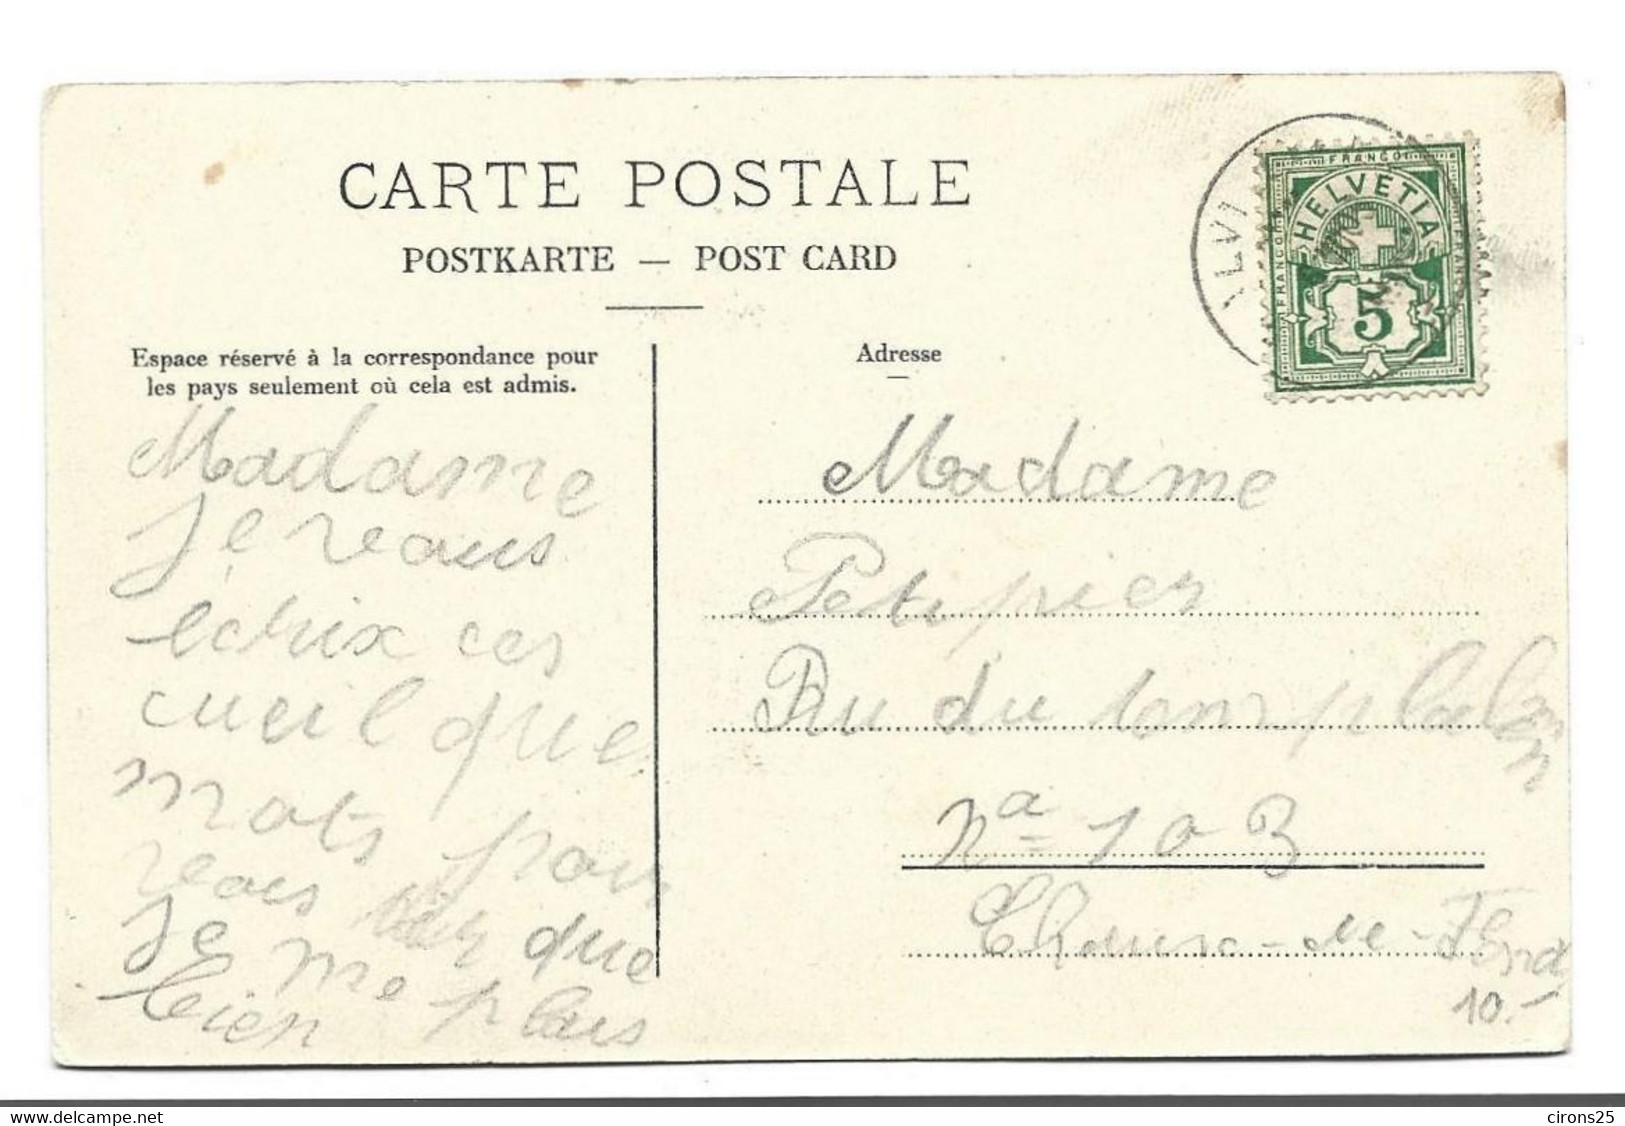 CARTE POSTALE
POSTKARTE — POST CARD
Espace réservé à la correspondance pour
les pays seulement où cela est admis.
Adresse
FRANCO
HELVETIA
FRANCO
5
ALVI
Madame
Je vous
écrix ces
cueil que
mots pour
vous que
Je me plais
bien
Madame
Petipier
Ru du
No 103
Chaux-de-Fond
10.-
www.delcampe.net
cirons25